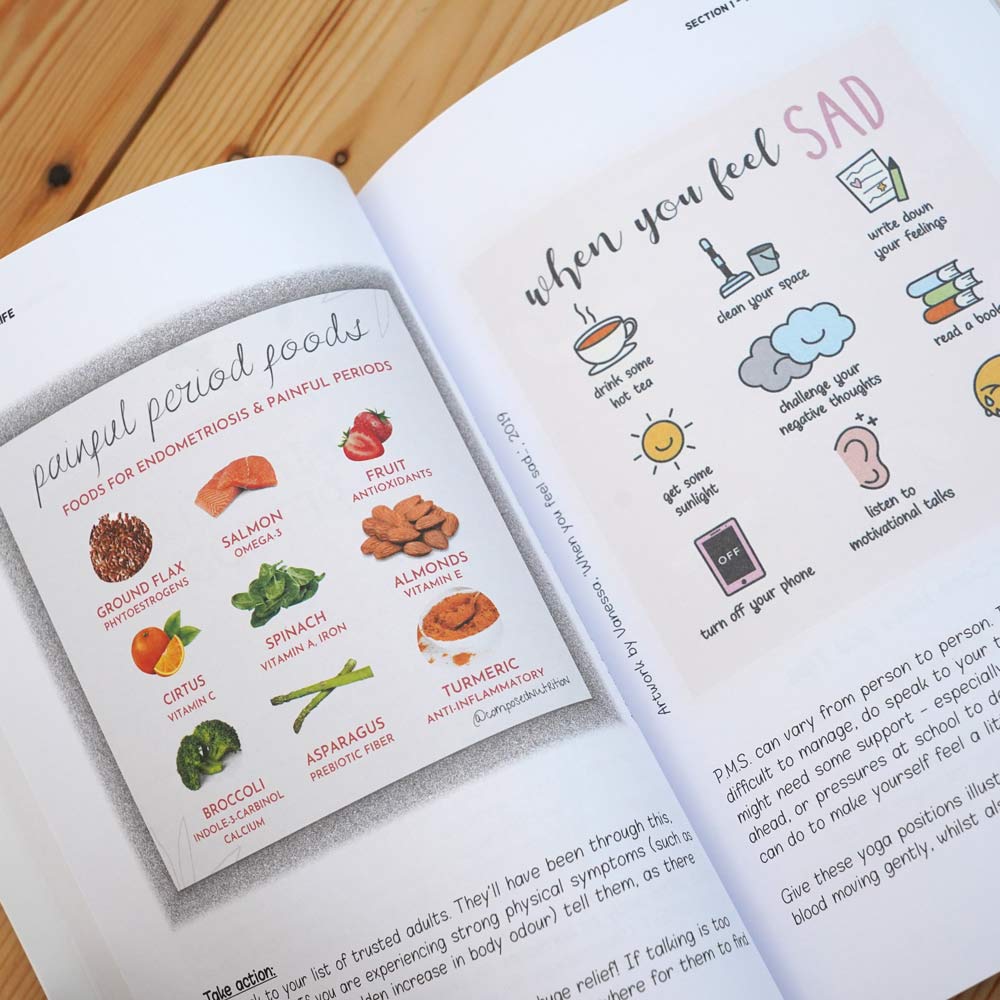 IFE
painful period foods
FOODS FOR ENDOMETRIOSIS & PAINFUL PERIODS
GROUND FLAX
PHYTOESTROGENS
SALMON
OMEGA-3
FRUIT
ANTIOXIDANTS
CIRTUS
VITAMIN C
SPINACH
VITAMIN A, IRON
ALMONDS
VITAMIN E
BROCCOLI
INDOLE-3-CARBINOL
CALCIUM
ASPARAGUS
PREBIOTIC FIBER
TURMERIC
ANTI-INFLAMMATORY
@composednutrition
Take action:
to your list of trusted adults. They'll have been through this.
you are experiencing strong physical symptoms (such as
increase in body odour) tell them, as there
huge relief! If talking is too
for them to find
SECTION 1 -
when you feel SAD
drink some
hot tea
clean your space
write down
your feelings
get some
sunlight
challenge your
negative thoughts
read a book
turn off your phone
OFF
listen to
motivational talks
Artwork by Vanessa, When you feel sad:, 2019
P.M.S. can vary from person to person.
difficult to manage, do speak to your
might need some support - especially
ahead, or pressures at school to
can do to make yourself feel a
Give these yoga positions
blood moving gently, whilst